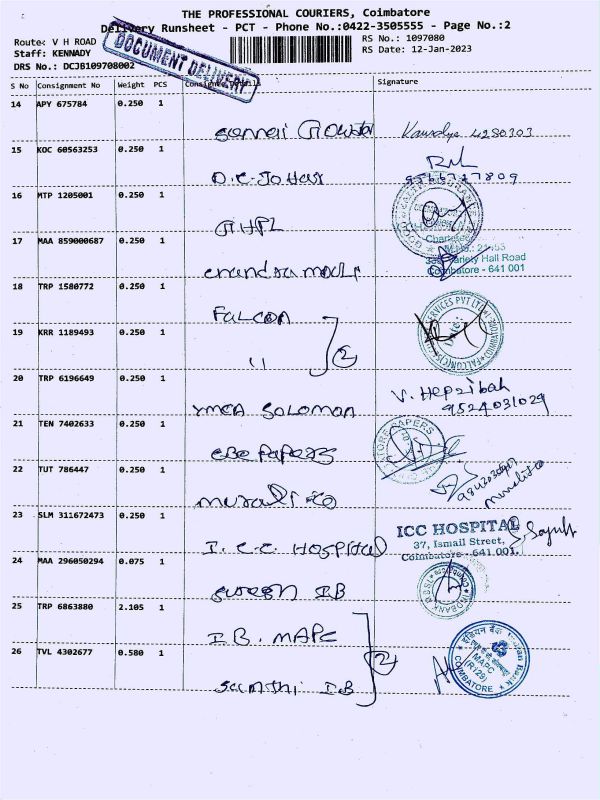 THE PROFESSIONAL COURIERS, Coimbatore
Delivery Runsheet - PCT - Phone No.:0422-3505555 - Page No.:2
Route: V H ROAD
RS No.: 1097080
Staff: KENNADY
RS Date: 12-Jan-2023
DRS No.: DCJB109708002
DOCUMENT DELIVERY
S No Consignment No Weight PCS Consignee Details Signature
14 APY 675784 0.250 1
15 KOC 60563253 0.250 1
D.C. Johar
16 MTP 1205001 0.250 1
GHPL
17 MAA 859000687 0.250 1
Variety Hall Road
Coimbatore - 641 001
18 TRP 1580772 0.250 1
FALCON
19 KRR 1189493 0.250 1
" 2
20 TRP 6196649 0.250 1
YMCA SOLOMON
V. Hepzibah
9524031029
21 TEN 7402633 0.250 1
CBE Papers
22 TUT 786447 0.250 1
Murali & Co
23 SLM 311672473 0.250 1
I.C.C. Hospital
ICC HOSPITAL
37, Ismail Street,
Coimbatore - 641 001.
24 MAA 296050294 0.075 1
IB
25 TRP 6863880 2.105 1
I.B. MAPC
26 TVL 4302677 0.580 1
2
I.B
इंडियन बैंक Indian Bank
MAPC
(R129)
COIMBATORE